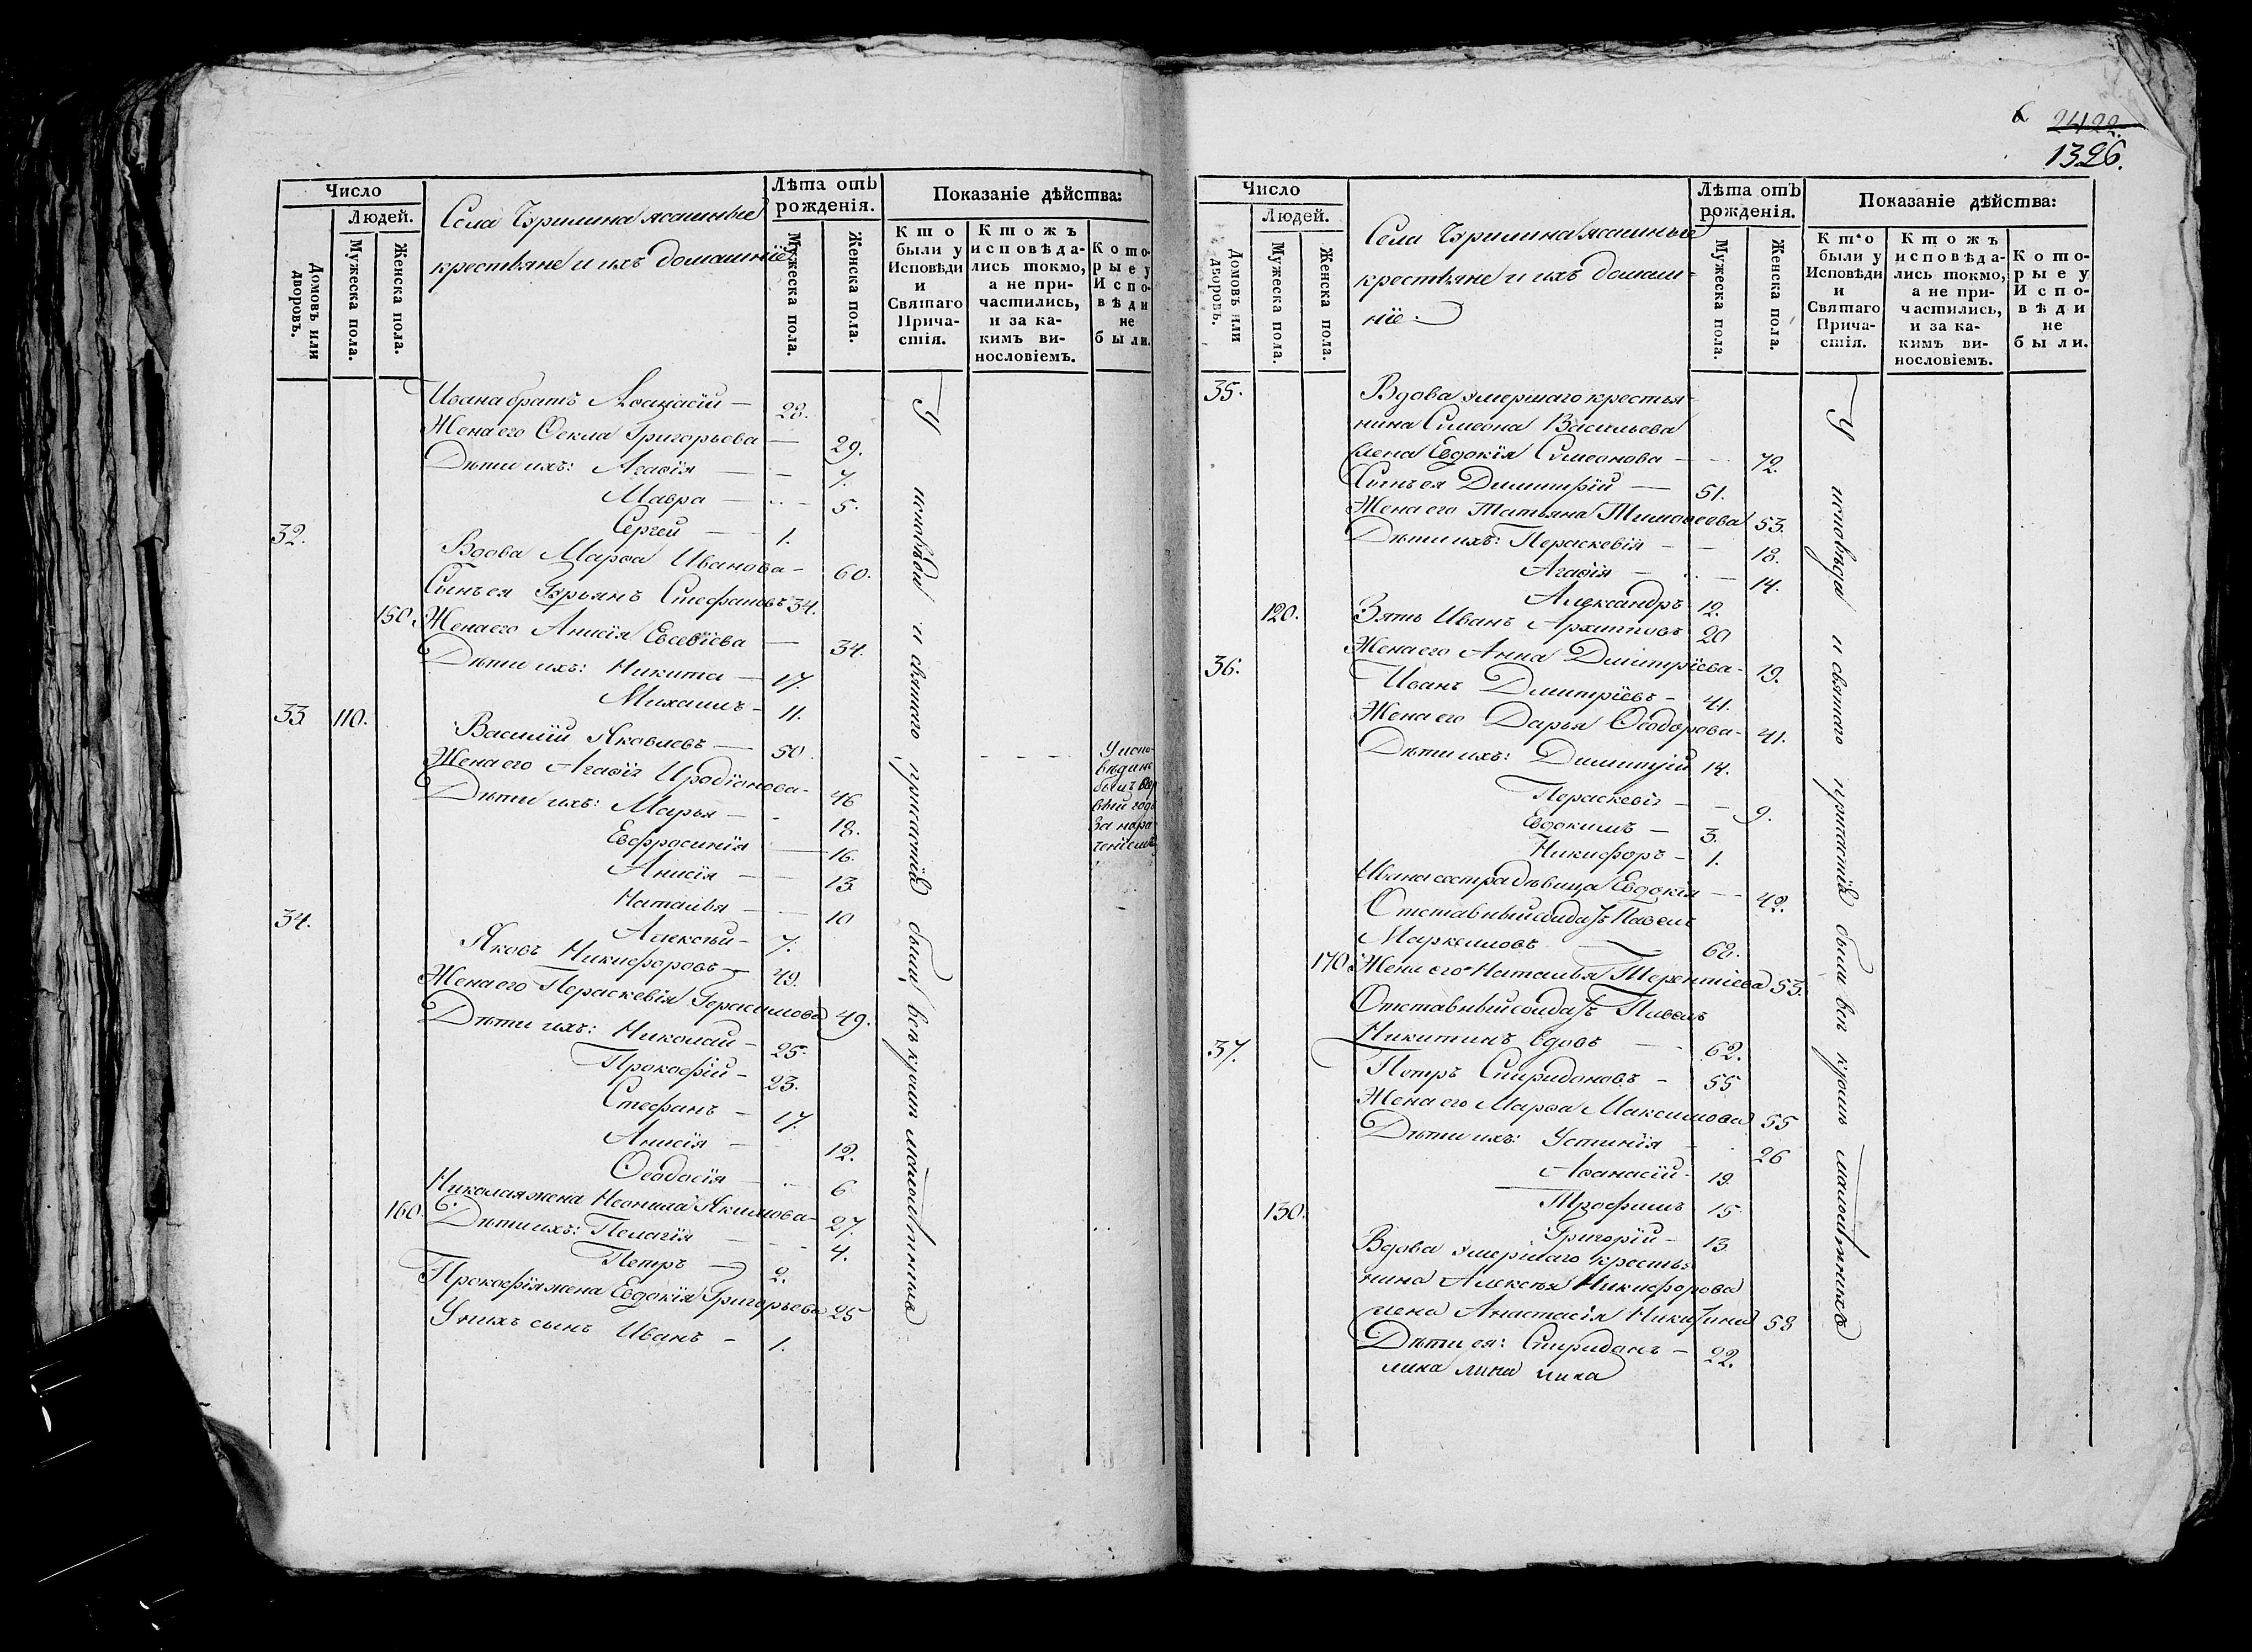 Число
Людей.
Домовъ или дворовъ.
Мужеска пола.
Женска пола.
Села Чурилина ясашные
крестьяне и ихъ домашнїе
Лѣта отъ рожденія.
Мужеска пола.
Женска пола.
Показаніе дѣйства:
Кто были у Исповѣди и Святаго Причастія.
Кто жъ исповѣдались токмо, а не причастились, и за какимъ винословіемъ.
Которые у Исповѣди не были.
Ивана братъ Аѳанасїй — 28.
Жена его Ѳекла Григорьева — 29.
Дѣти ихъ: Агаѳїя — 7.
Мавра — 5.
Сергей — 1.
32. Вдова Марѳа Иванова — 60.
Сынъ ея Гурьянъ Стефановъ 34.
150. Жена его Анисїя Евсевїева — 34.
Дѣти ихъ: Никита — 17.
Михаилъ — 11.
33 110. Василїй Яковлевъ — 50
Жена его Агаѳїя Иродїонова — 46
Дѣти ихъ: Марья — 18.
Евфросинїя — 16.
Анисїя — 13
Наталья — 10
Алексѣй — 7.
34. Яковъ Никифоровъ — 49.
Жена его Пераскевїя Герасимова 49.
Дѣти ихъ: Николай — 25.
Прокофїй — 23.
Стефанъ — 17.
Анисїя — 12.
Ѳеодосїя — 6
Николая жена Неонила Якимова — 27.
160. Дѣти ихъ: Пелагїя — 4.
Петръ — 2.
Прокофїя жена Евдокїя Григорьева 25
У нихъ сынъ Иванъ — 1.
У исповѣди и святаго причастїя были всѣ кромѣ малолѣтныхъ
У испо-
вѣди не
были
за нера-
ченїемъ
2422.
1326.
Число
Людей.
Домовъ или дворовъ.
Мужеска пола.
Женска пола.
Села Чурилина ясашные
крестьяне и ихъ домаш-
нїе
Лѣта отъ рожденія.
Мужеска пола.
Женска пола.
Показаніе дѣйства:
Кто были у Исповѣди и Святаго Причастія.
Кто жъ исповѣдались токмо, а не причастились, и за какимъ винословіемъ.
Которые у Исповѣди не были.
35. Вдова умершаго крестья-
нина Симеона Васильева
жена Евдокїя Симеонова — 72.
Сынъ ея Димитрїй — 51.
Жена его Татьяна Тимоѳеева 53.
Дѣти ихъ: Пераскевїя — 18.
Агаѳїя — 14.
Александръ 12.
120. Зять Иванъ Архиповъ 20
Жена его Анна Димитрїева — 19.
36. Иванъ Димитрїевъ — 41.
Жена его Дарья Ѳеодорова — 41.
Дѣти ихъ: Димитрїй 14.
Пераскевїя — 9.
Евдокимъ — 3.
Никифоръ — 1.
Ивана сестра дѣвица Евдокїя — 42.
Отставный солдатъ Павелъ
Маркеловъ — 68.
170. Жена его Наталья Терентїева 53.
Отставный солдатъ Павелъ
Никитинъ вдовъ — 62.
37. Петръ Спиридоновъ — 55
Жена его Марѳа Максимова 55
Дѣти ихъ: Устинїя — 26
Аѳанасїй — 19.
Трофимъ 15
130. Григорїй — 13
Вдова умершаго крестья
нина Алексѣя Никифорова
жена Анастасїя Никитина 58
Дѣти ея: Спиридонъ — 22.
У исповѣди и святаго причастїя были всѣ кромѣ малолѣтныхъ